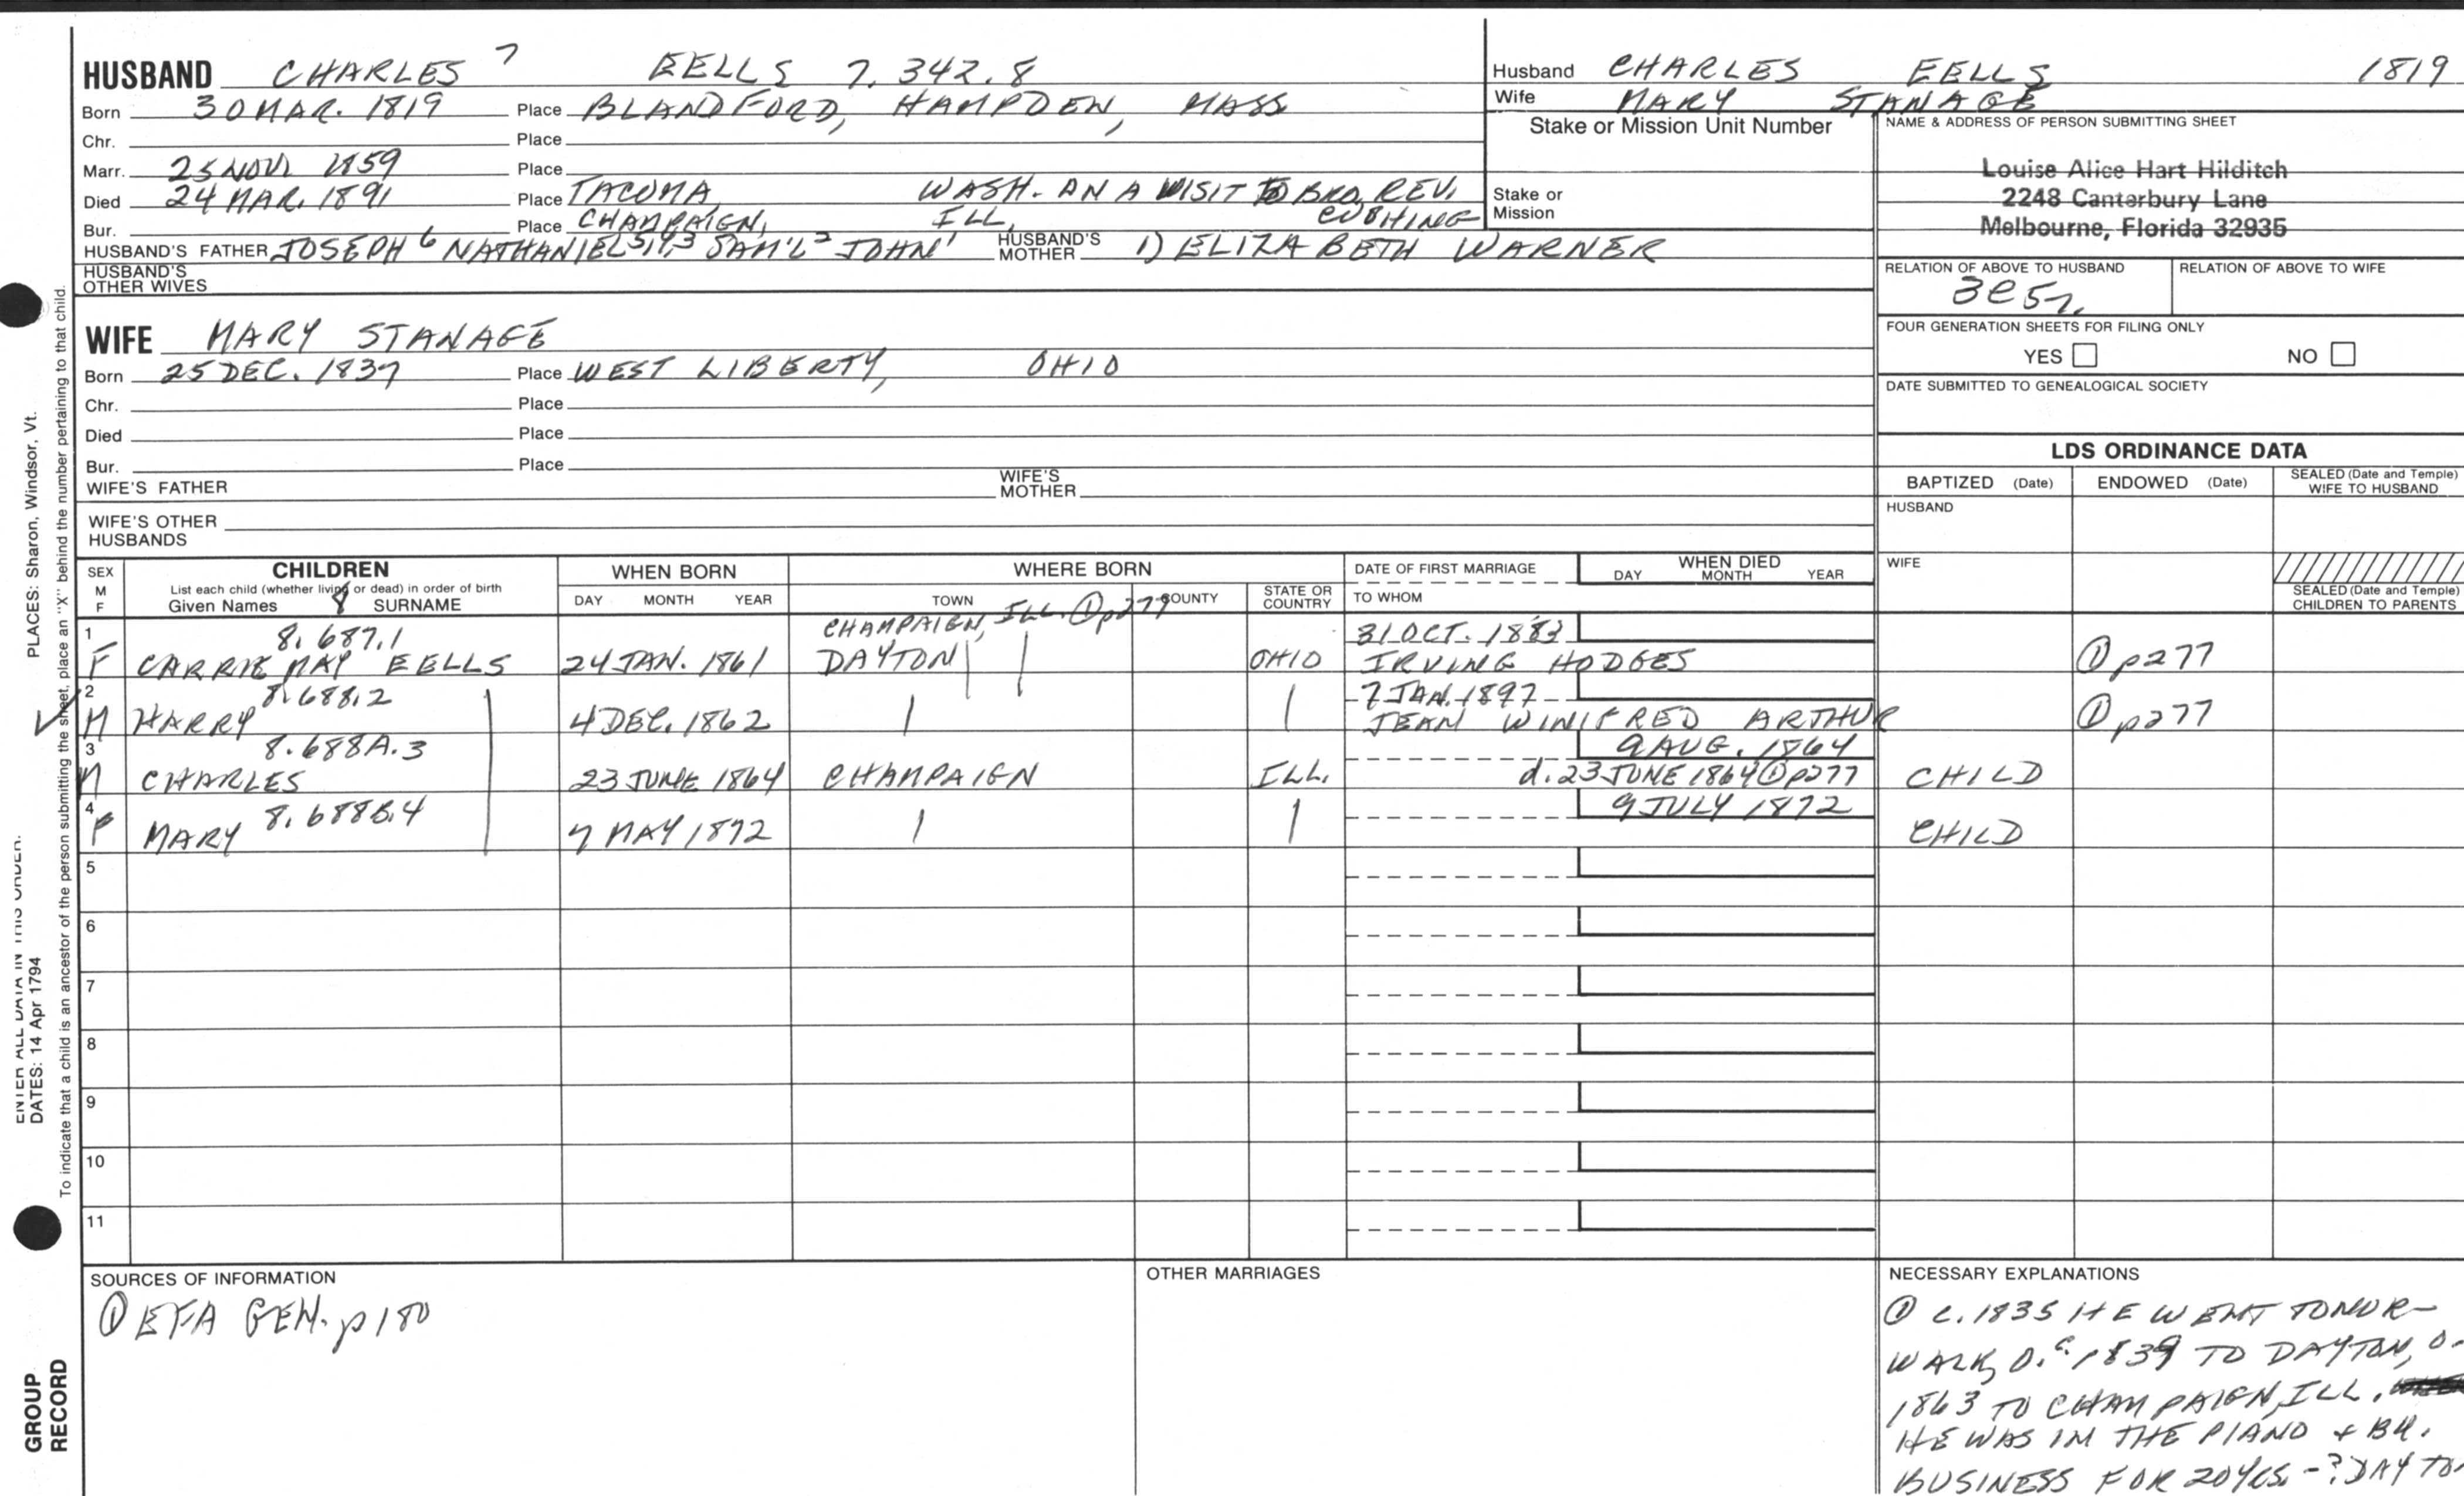 HUSBAND CHARLES 7 EELLS 7.342.8
Born 30 MAR. 1819 Place BLANDFORD, HAMPDEN, MASS
Chr. Place
Marr. 25 NOV. 1859 Place
Died 24 MAR. 1891 Place TACOMA, WASH. ON A VISIT TO BRO. REV.
Bur. Place CHAMPAIGN, ILL. CUSHING
HUSBAND'S FATHER JOSEPH 6 NATHANIEL 5,4,3 SAM'L 2 JOHN 1 HUSBAND'S MOTHER 1) ELIZABETH WARNER
HUSBAND'S OTHER WIVES
Husband CHARLES EELLS 1819
Wife MARY STANAGE
Stake or Mission Unit Number
Stake or Mission
NAME & ADDRESS OF PERSON SUBMITTING SHEET
Louise Alice Hart Hilditch
2248 Canterbury Lane
Melbourne, Florida 32935
RELATION OF ABOVE TO HUSBAND RELATION OF ABOVE TO WIFE
3C5r.
FOUR GENERATION SHEETS FOR FILING ONLY
YES NO
DATE SUBMITTED TO GENEALOGICAL SOCIETY
WIFE MARY STANAGE
Born 25 DEC. 1837 Place WEST LIBERTY, OHIO
Chr. Place
Died Place
Bur. Place
WIFE'S FATHER WIFE'S MOTHER
WIFE'S OTHER HUSBANDS
LDS ORDINANCE DATA
BAPTIZED (Date) ENDOWED (Date) SEALED (Date and Temple) WIFE TO HUSBAND
HUSBAND
WIFE
SEALED (Date and Temple) CHILDREN TO PARENTS
SEX M F
CHILDREN
List each child (whether living or dead) in order of birth
Given Names 8 SURNAME
WHEN BORN
DAY MONTH YEAR
WHERE BORN
TOWN COUNTY STATE OR COUNTRY
DATE OF FIRST MARRIAGE
TO WHOM
WHEN DIED
DAY MONTH YEAR
1 8.687.1 CHAMPAIGN, ILL. ① p277 31 OCT. 1883
F CARRIE MAY EELLS 24 JAN. 1861 DAYTON OHIO IRVING HODGES ① p277
2 8.688.2 7 JAN. 1897
M HARRY 4 DEC. 1862 JEAN WINIFRED ARTHUR ① p277
3 8.688A.3 9 AUG. 1864
M CHARLES 23 JUNE 1864 CHAMPAIGN ILL. d. 23 JUNE 1864 ① p277 CHILD
4 8.688B.4 9 JULY 1872
F MARY 7 MAY 1872 CHILD
5
6
7
8
9
10
11
SOURCES OF INFORMATION
① EFA GEN. p180
OTHER MARRIAGES
NECESSARY EXPLANATIONS
① c. 1835 HE WENT TO NOR-
WALK, O. c. 1839 TO DAYTON, O.
1863 TO CHAMPAIGN, ILL.
HE WAS IN THE PIANO + BK.
BUSINESS FOR 20 YRS. - ? DAYTO
PLACES: Sharon, Windsor, Vt.
To indicate that a child is an ancestor of the person submitting the sheet, place an "X" behind the number pertaining to that child.
ENTER ALL DATA IN THIS ORDER:
DATES: 14 Apr 1794
GROUP
RECORD